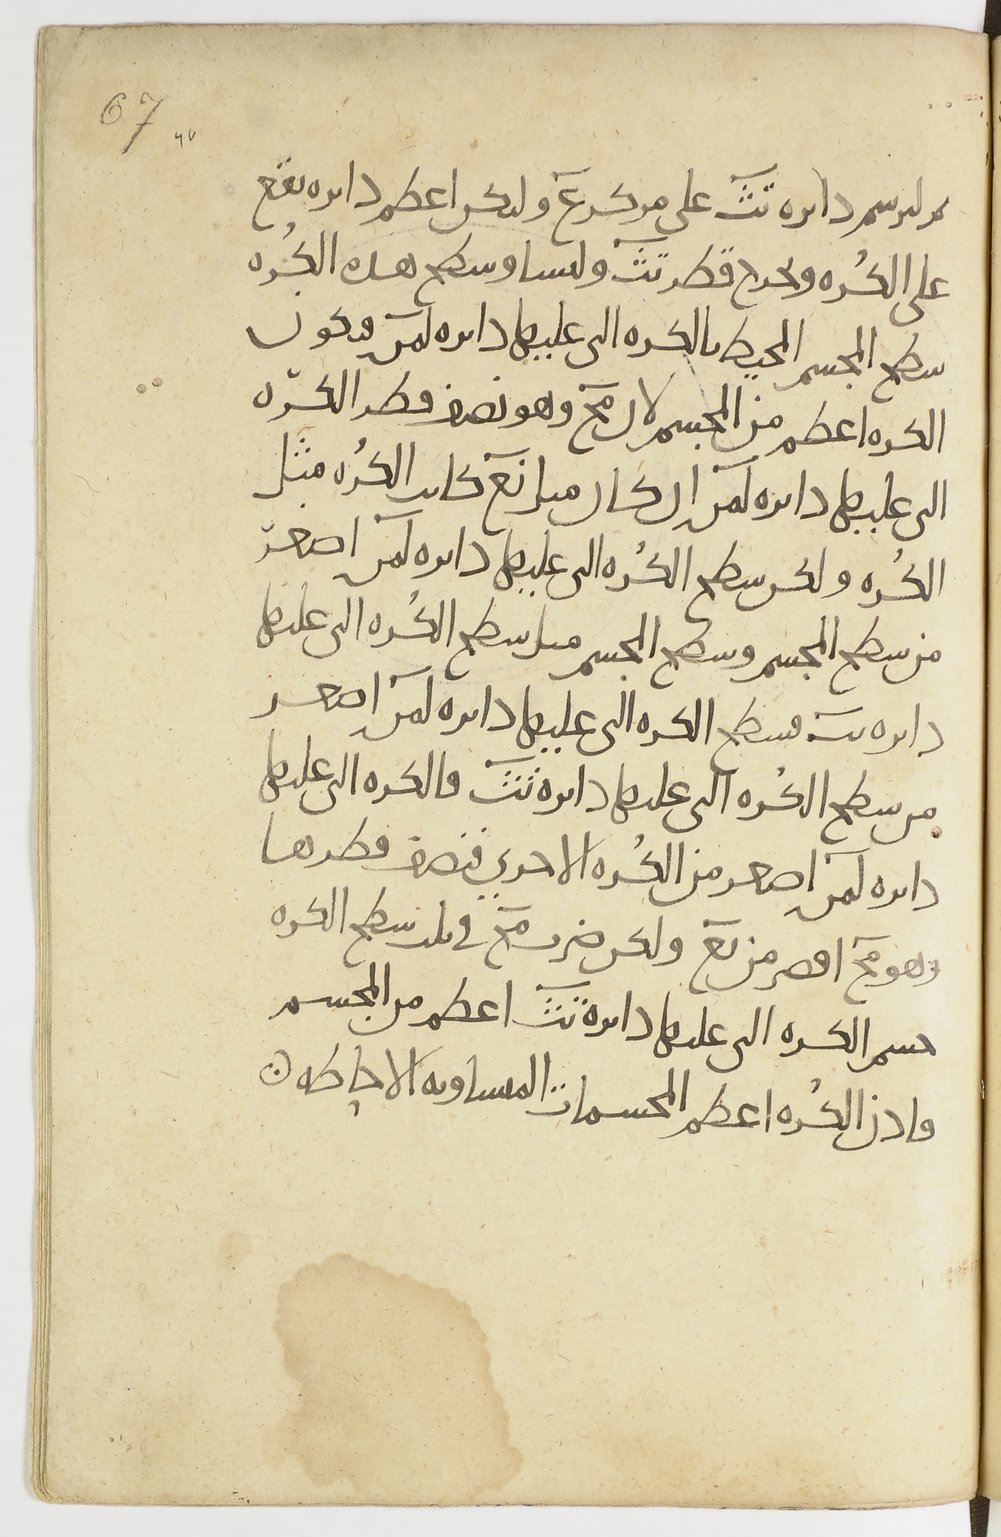 67
٦٧
ثم لنرسم دائره تث على مركز ع ولتكن اعظم دائره تقع
على الكُره ونخرج قطر تث وليساو سطح هذه الكُره
سطح المجسم المحيط بالكره التى عليها دائره لمن فتكون
الكره اعظم من المجسم لان مح وهو نصف قطر الكره
التى عليها دائره لمن ان كان مثل تع كانت الكُره مثل
الكُره ولكن سطح الكُره التى عليها دائره لمن اصغر
من سطح المجسم وسطح المجسم مثل سطح الكُره التى عليها
دائره تث فسطح الكره التى عليها دائره لمن اصغر
من سطح الكُره التى عليها دائرة تث فالكره التى عليها
دائره لمن اصغر من الكُره الاخرى فنصف قطرها
وهو مح اقصر من تع ولكن ضرب مح فى ثلث سطح الكره
جسم الكره التى عليها دائرة تث اعظم من المجسم
فاذن الكُره اعظم المجسمات المتساويه الاحاطه ن